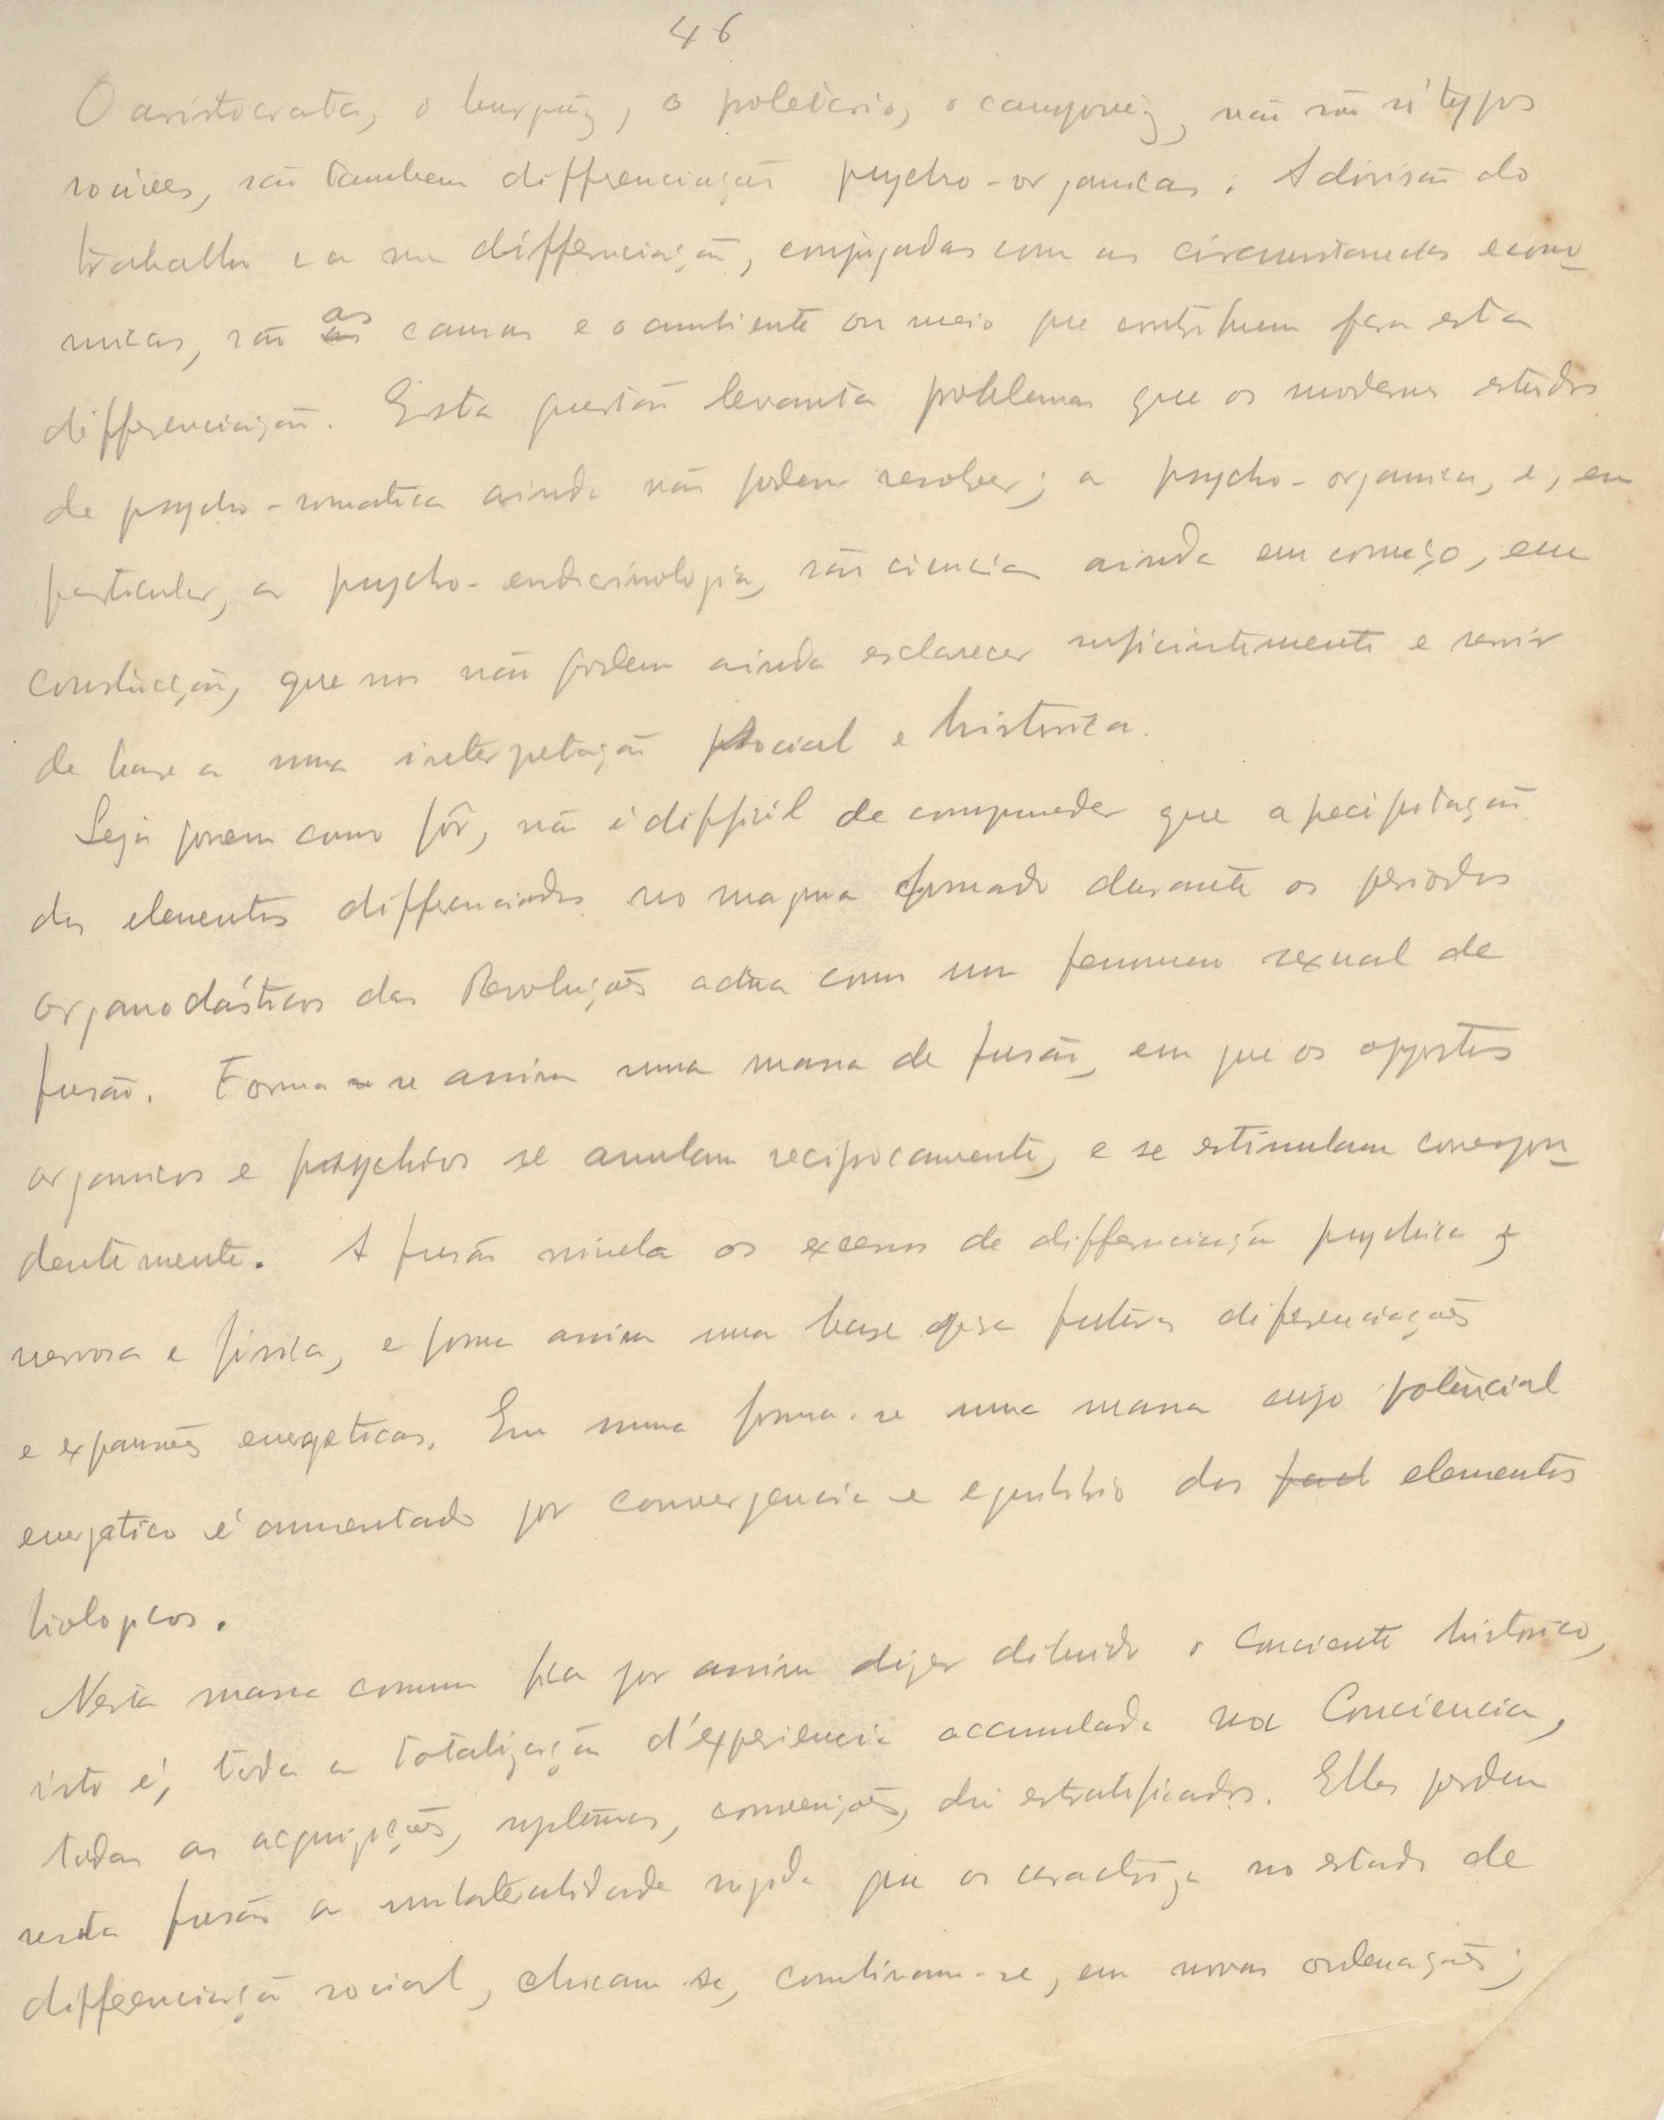 46
O aristocrata, o burguêz, o proletario, o camponêz, não são só typos
sociaes, são tambem differenciações psycho-organicas: A divisão do
trabalho e a sua differenciação, conjugadas com as circumstancias econo-
micas, são as causas e o ambiente ou meio que contribuem para esta
differenciação. Esta questão levanta problemas que os modernos estudos
de psycho-somatica ainda não podem resolver; a psycho-organica, e, em
particular, a psycho-endocrinologia, são ciencias ainda em começo, em
construcção, que nos não podem ainda esclarecer suficientemente e servir
de base a uma interpretação social e historica.
Seja porem como fôr, não é difficil de comprender que a precipitação
dos elementos differenciados no magma formado durante os periodos
organoclásticos das Revoluções actua como um fenomeno sexual de
fusão. Forma se assim uma massa de fusão, em que os oppostos
organicos e psychicos se anulam reciprocamente, e se estimulam correspon-
dentemente. A fusão nivela os excessos de differenciação psychica,
nervosa e fisica, e forma assim uma base para futuras diferenciações
e expansões energeticas. Em suma forma-se uma massa cujo potencial
energetico é aumentado por convergencia e equilibrio dos elementos
biologicos.
Nesta massa comum fica por assim dizer diluido o Conciente historico,
isto é, toda a totalização d'experiencia accumulada na Conciencia,
todas as acquisições, systemas, convenções, ahi estratificados. Elles perdem
nesta fusão a unilateralidade rigida que os caracteriza no estado de
differenciação social, chocam-se, combinam-se, em novas ordenações;